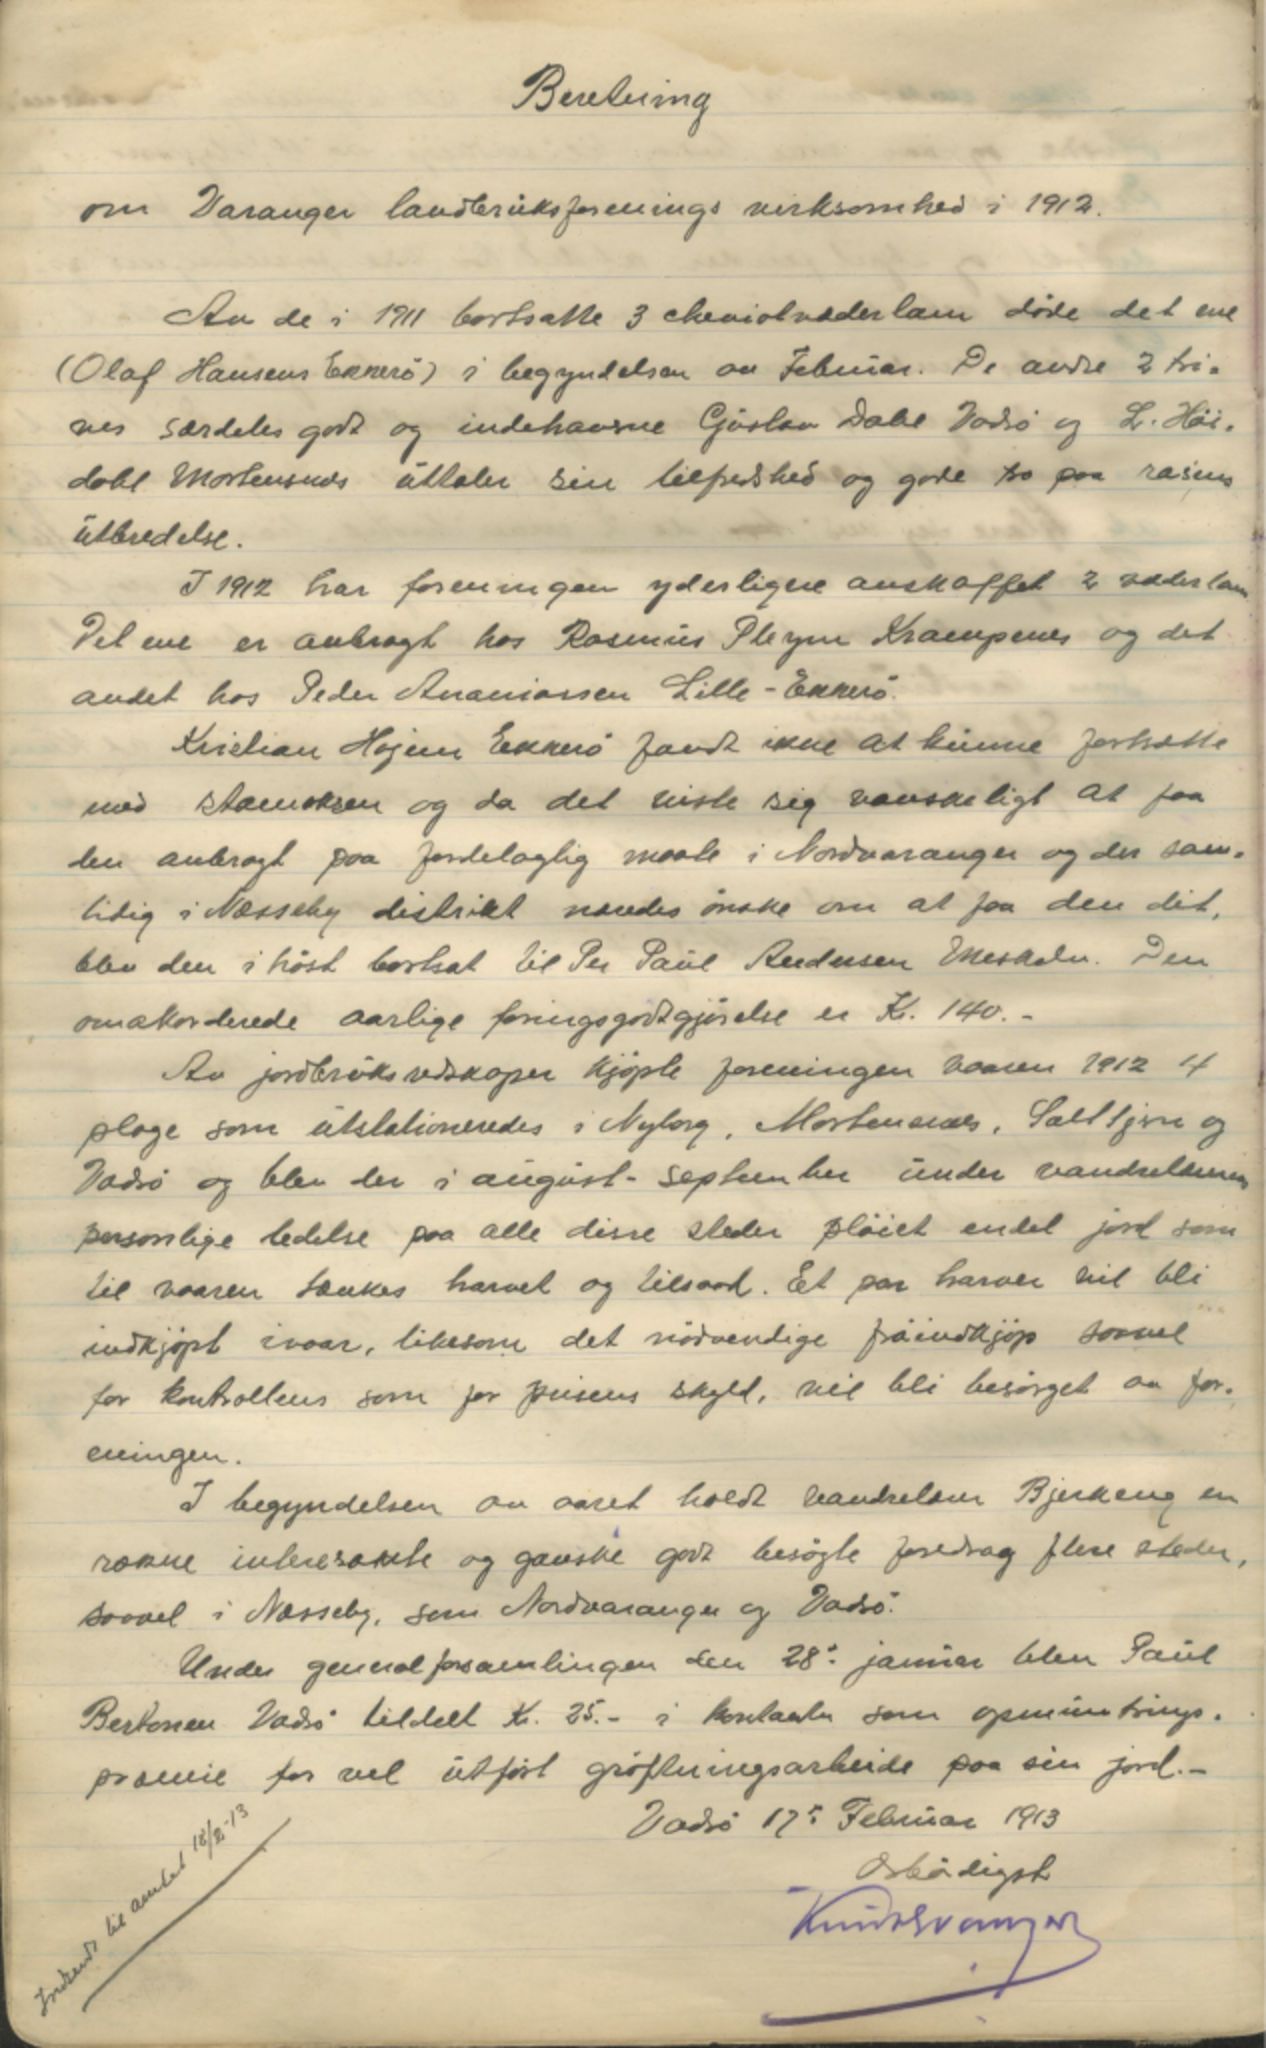 Beretning
om Varanger landbruksforenings virksomhed i 1912.
Av de i 1911 bortsatte 3 cheviotvæderlam døde det ene
(Olaf Hansens Ekkerö) i begyndelsen av Februar. De andre 2 tri-
ves særdeles godt og indehaverne Gustav Dahl Vadsö og L. Höi-
dahl Mortensnæs uttaler sin tilfredshed og gode tro paa rasens
utbredelse.
I 1912 har foreningen yderligere anskaffet 2 væderlam
Det ene er anbragt hos Rasmus Pleym Krampenes og det
andet hos Peder Ananiassen Lille-Ekkerö.
Kristian Hojem Ekkerö fandt ikke at kunne fortsætte
med stamoksen og da det viste sig vanskeligt at faa
den anbragt paa fordelagtig maate i Nordvaranger og der sam-
tidig i Næsseby distrikt næredes önske om at faa den dit,
blev den i höst bortsat til Per Paul Andersen Meskelv. Den
omakorderede aarlige foringsgodtgjörelse er Kr. 140.-
Av jordbruksredskaper kjöpte foreningen vaaren 1912 4
ploge som utstationeredes i Nyborg, Mortensnæs, Salttjern og
Vadsö og blev der i august-september under vandrelærerens
personlige ledelse paa alle disse steder plöiet endel jord som
til vaaren tænkes harvet og tilsaad. Et par harver vil bli
indkjöpt ivaar, likesom det nödvendige fröindkjöp saavel
for kontrollens som for prisens skyld, vil bli besörget av for-
eningen.
I begyndelsen av aaret holdt vandrelærer Bjerkeng en
række interessante og ganske godt besögte foredrag flere steder,
saavel i Næsseby, som Nordvaranger og Vadsö.
Under generalforsamlingen den 28de januar blev Paul
Bertonen Vadsö tildelt Kr. 25.- i kontanter som opmuntrings-
præmie for vel utfört gröftningsarbeide paa sin jord.-
Vadsö 17de Februar 1913
Ærbödigst
Indsendt til amtet 18/2-13